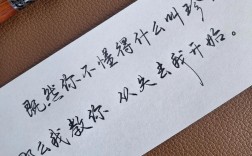 既然你不懂得什么叫珍
那么我教你 从失去我开始。